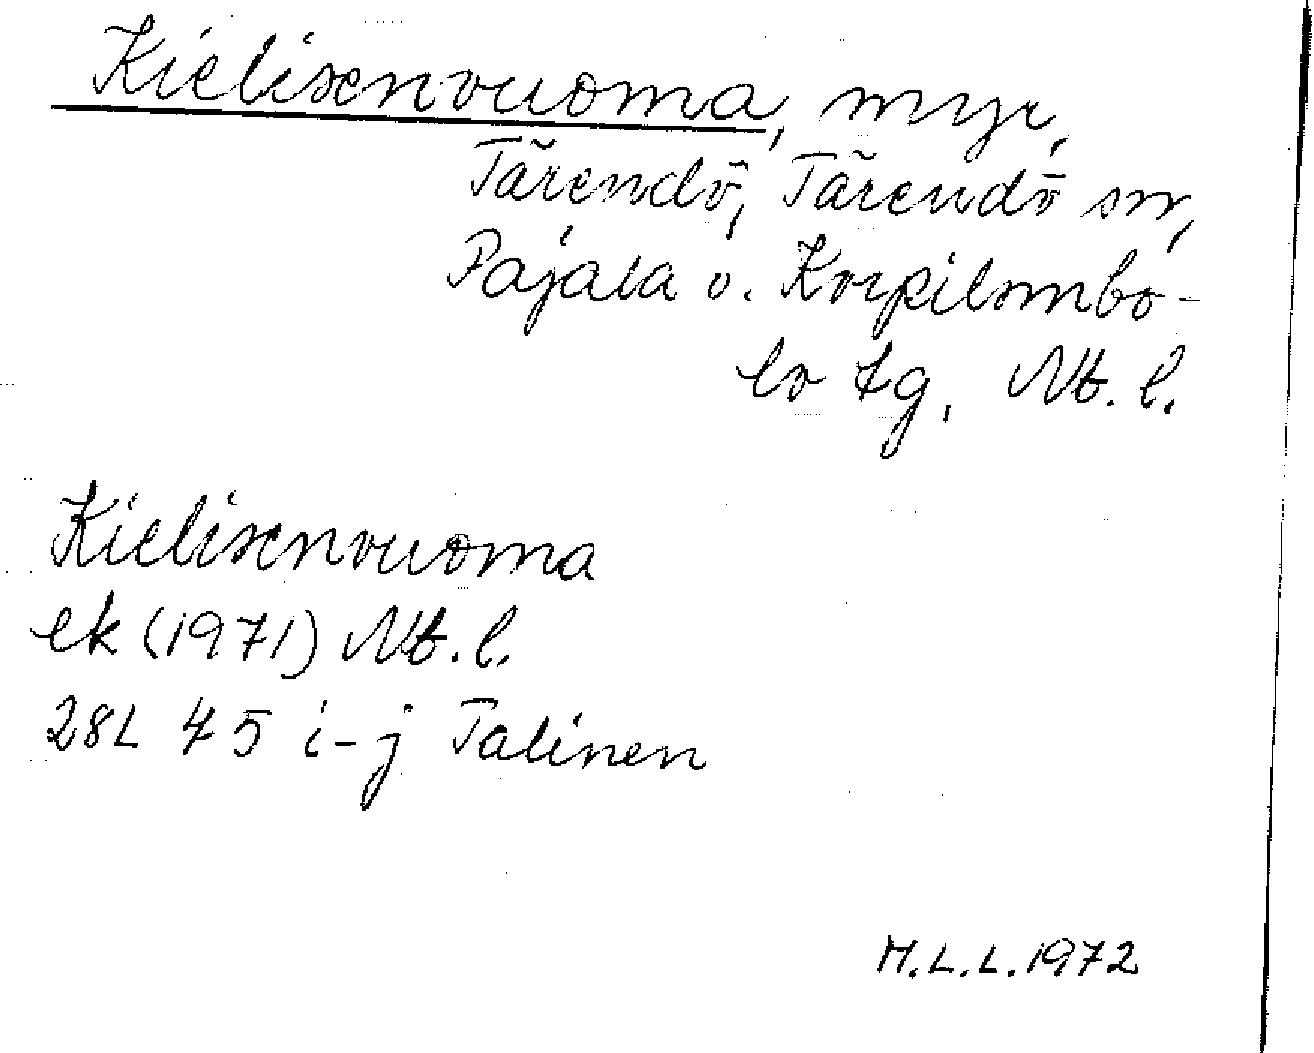 Kielisenvuoma, myr,
Tärendö, Tärendö sn,
Pajala o. Korpilombo-
lo tg, Nb. l.
Kielisenvuoma
ek (1971) Nb. l.
28L 45 i-j Talinen
M.L.L. 1972